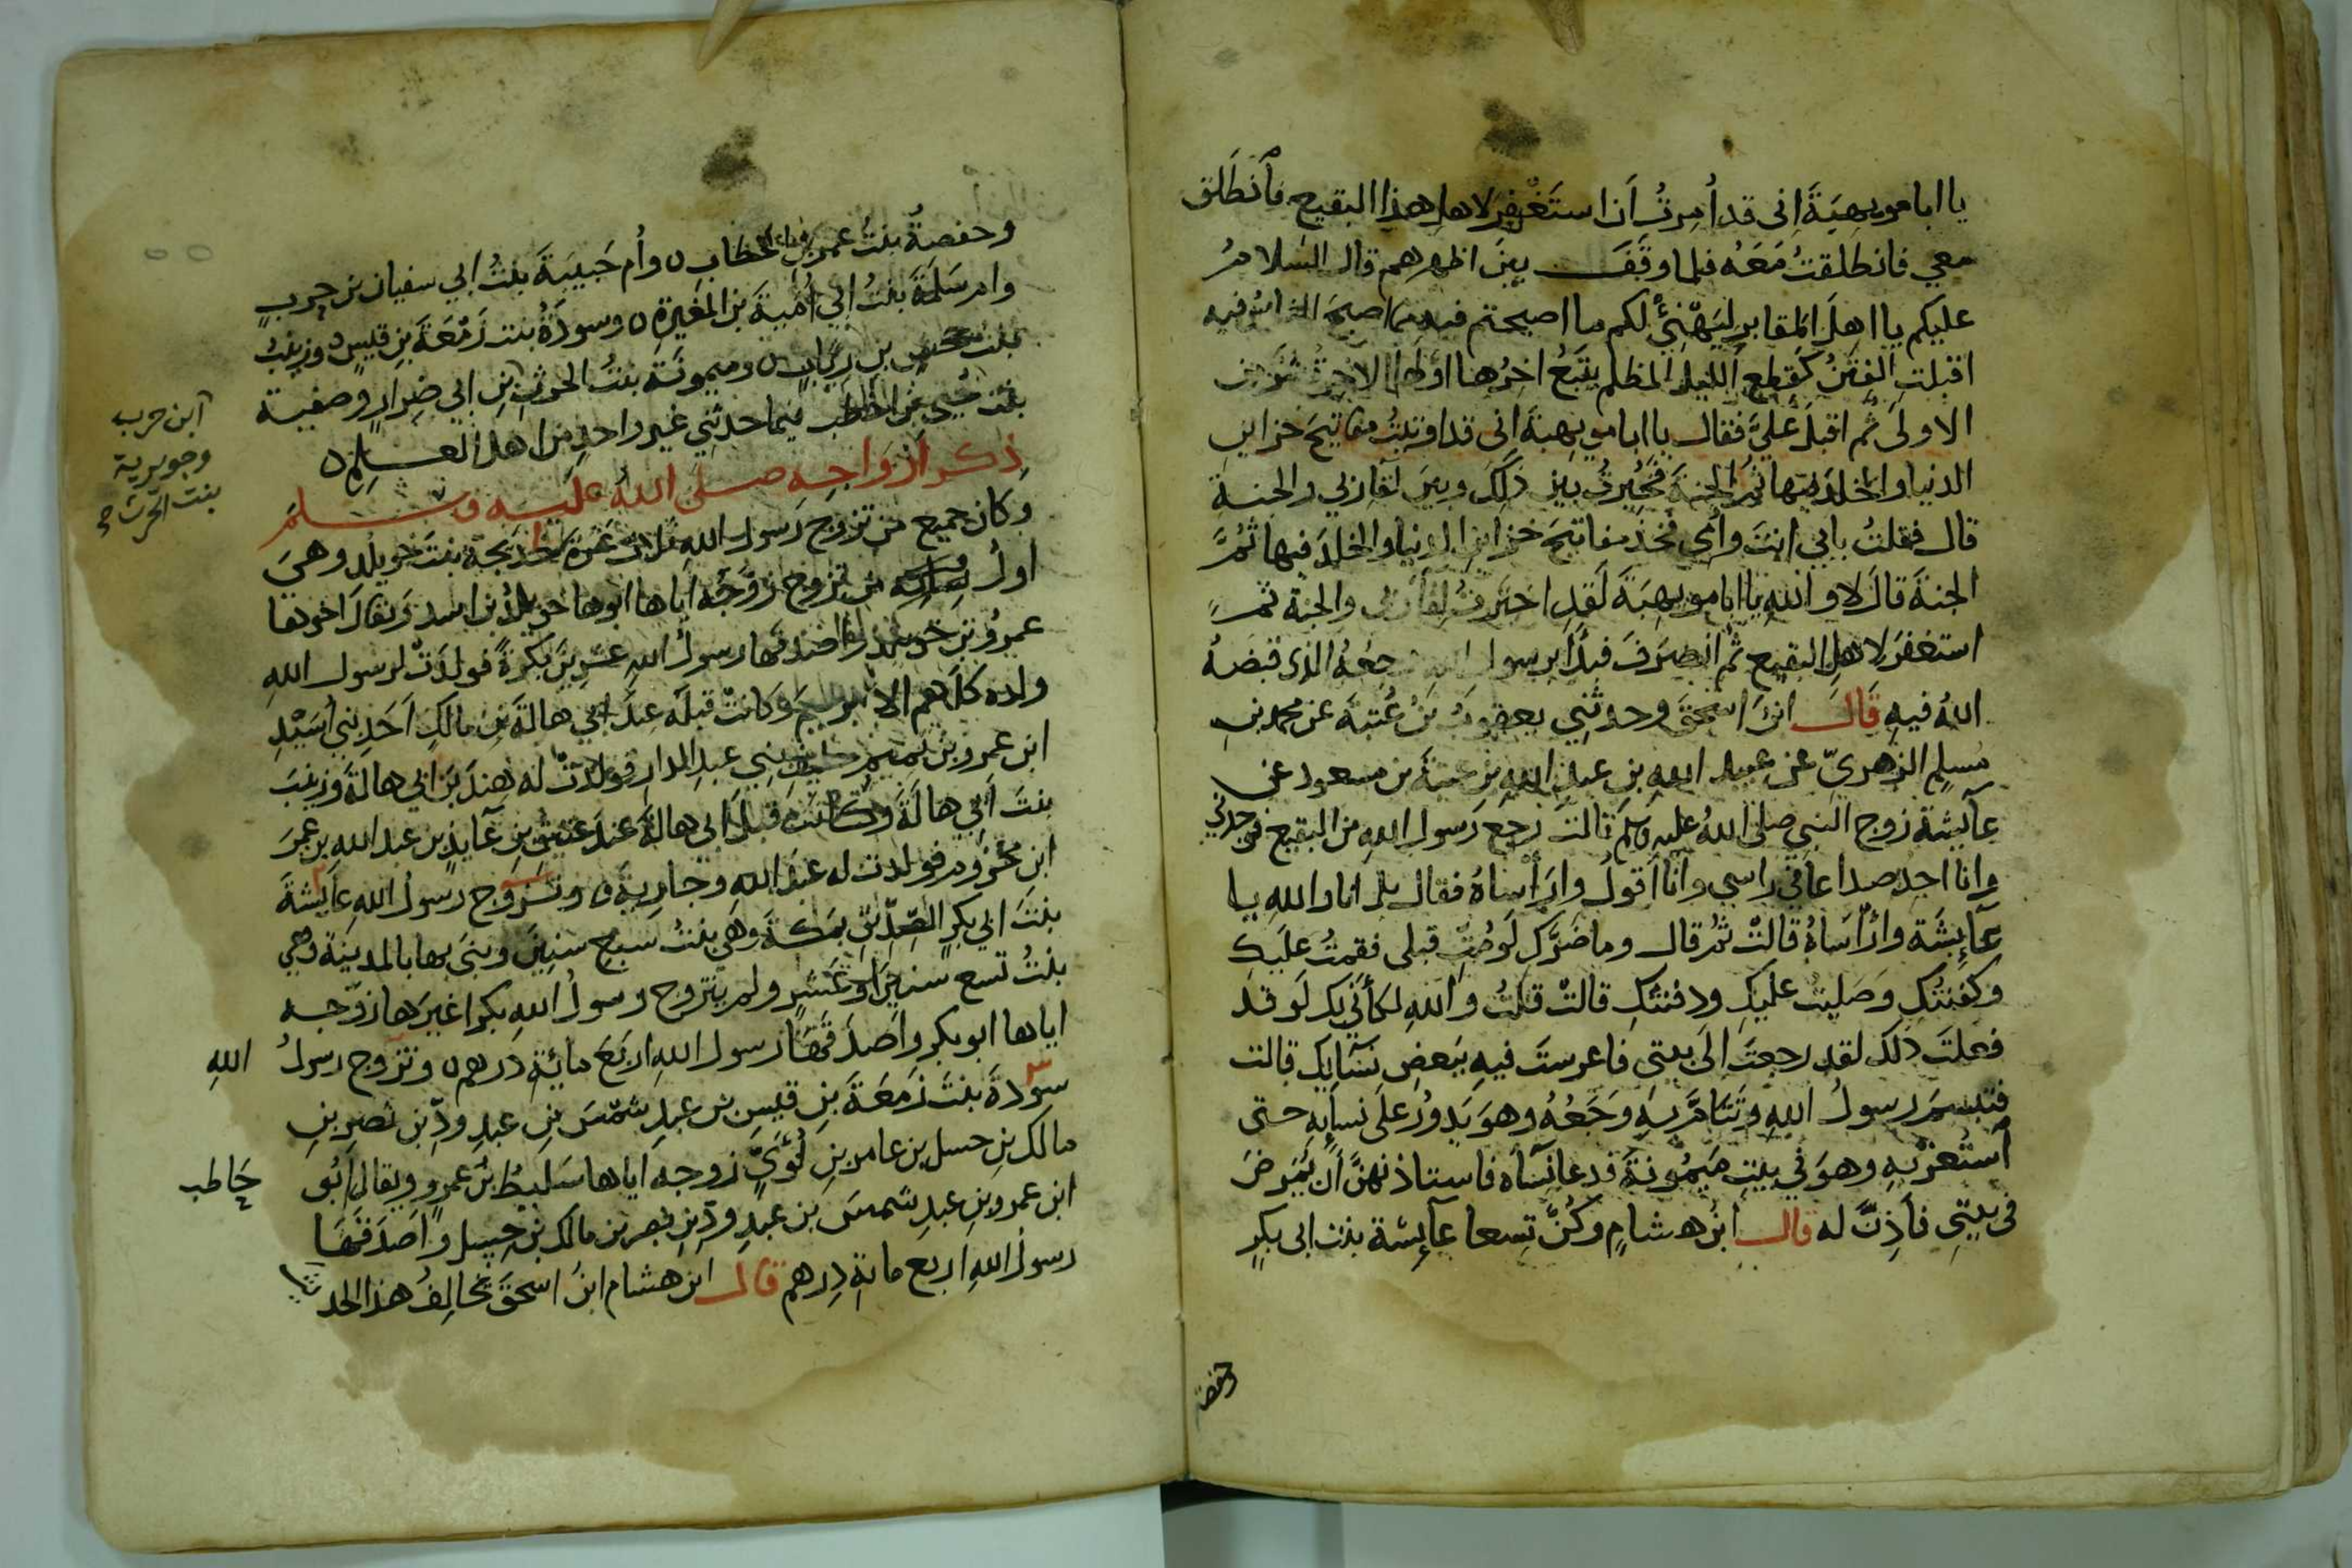 يا ابا مويهبة انى قد أمرت أن استغفر لاهل هذا البقيع فانطلق
معي فانطلقت معه فلما وقف بين اظهرهم قال السلام
عليكم يا اهل المقابر ليهنئ لكم ما اصبحتم فيه مما اصبح الناس فيه
اقبلت الفتن كقطع الليل المظلم يتبع اخرها اولها الاخرة شر من
الاولى ثم اقبل علي فقال يا ابا مويهبة انى قد اوتيت مفاتيح خزاين
الدنيا والخلد فيها ثم الجنة فخيرت بين ذلك وبين لقا ربي والجنة
قال فقلت بابي انت وامي فخذ مفاتيح خزاين الدنيا والخلد فيها ثم
الجنة قال لا والله يا ابا مويهبة لقد اخترت لقا ربى والجنة ثم
استغفر لاهل البقيع ثم انصرف فبدأ برسول الله وجعه الذى قبضه
الله فيه قال ابن اسحق وحدثني يعقوب بن عتبة عن محمد بن
مسلم الزهري عن عبيد الله بن عبد الله بن عتبة بن مسعود عن
عآيشة زوج النبي صلى الله عليه وسلم قالت رجع رسول الله من البقيع فوجدني
وانا اجد صداعا في راسي وانا اقول وارأساه فقال بل انا والله يا
عآيشة وارأساه قالت ثم قال وما ضرك لو مت قبلى فقمت عليك
وكفنتك وصليت عليك ودفنتك قالت قلت والله لكأني بك لو قد
فعلت ذلك لقد رجعت الى بيتى فاعرست فيه ببعض نسآيك قالت
فتبسم رسول الله وتتام به وجعه وهو يدور على نسايه حتى
استعز به وهو في بيت ميمونة فدعا نسآه فاستاذنهن أن يمرض
فى بيتي فأذن له قال ابن هشام وكن تسعا عآيشة بنت ابى بكر
حفصة
وحفصة بنت عمر بن الخطاب وأم حبيبة بنت ابي سفيان بن حرب
وام سلمة بنت ابي أمية بن المغيرة وسودة بنت زمعة بن قيس وزينب
بنت جحش بن رياب وميمونة بنت الحرث بن ابي ضرار وصفية
بنت حيي بن اخطب فيما حدثني غير واحد من اهل العلم
ابن حرب
وجويرية
بنت الحرث صح
ذكر ازواجه صلى الله عليه وسلم
وكان جميع من تزوج رسول الله ثلاث عشرة خديجة بنت خويلد وهي
اول من تزوج زوجه اياها ابوها خويلد بن اسد ويقال اخوها
عمرو بن خويلد واصدقها رسول الله عشرين بكرة فولدت لرسول الله
ولده كلهم الا ابرهيم وكانت قبله عند ابي هالة بن مالك احد بني أسيد
ابن عمرو بن تميم حليف بني عبد الدار فولدت له هند بن ابي هالة وزينب
بنت أبي هالة وكانت قبل ابي هالة عند عتيق بن عآيذ بن عبد الله بن عمر
ابن مخزوم فولدت له عبد الله وجارية وتزوج رسول الله عايشة
بنت ابي بكر الصديق بمكة وهي بنت سبع سنين وبنى بها بالمدينة وهي
بنت تسع سنين او عشر ولم يتزوج رسول الله بكرا غيرها زوجه
اياها ابو بكر واصدقها رسول الله اربع مائة درهم وتزوج رسول الله
سودة بنت زمعة بن قيس بن عبد شمس بن عبد ود بن نصر بن
مالك بن حسل بن عامر بن لؤي زوجه اياها سليط بن عمرو ويقال ابو حاطب
ابن عمرو بن عبد شمس بن عبد ود بن نصر بن مالك بن حسل واصدقها
رسول الله اربع مائة درهم قال ابن هشام ابن اسحق يخالف هذا الحديث